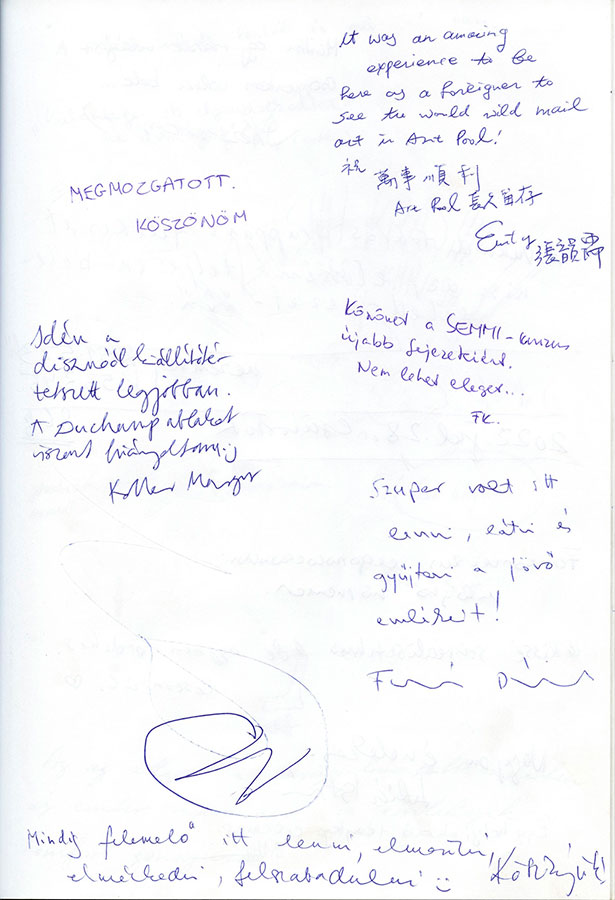 It was an amazing
experience to be
here as a foreigner to
see the world wild mail
art in Art Pool!
祝 萬事順利
Art Pool 長久留存
Emily 張韻
MEGMOZGATOTT.
KÖSZÖNÖM
Köszönet a SEMMI-kurzus
újabb fejezetéért.
Nem lehet eléget...
FK.
Idén a
disznóól kiállítótér
tetszett legjobban.
A Duchamp ablakot
viszont hiányoltam
Szuper volt itt
lenni, látni és
gyűjteni a jövő
emlékeit!
Mindig felemelő itt lenni,
elmélkedni, felszabadulni